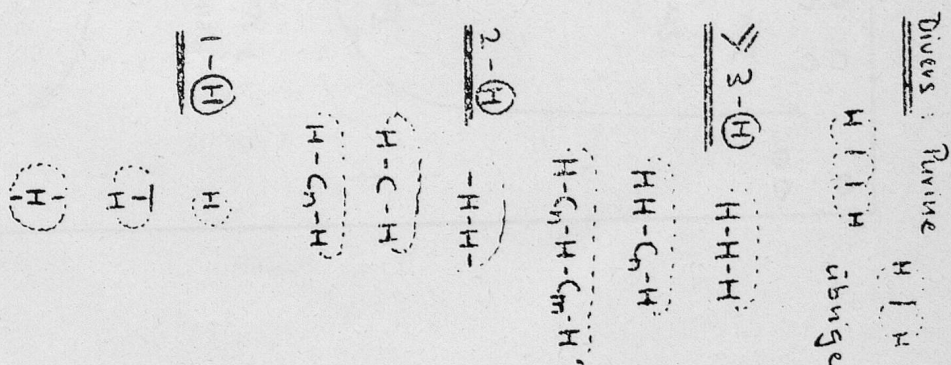 Divers: Purine
H | H   H | H
übrige
≥ 3-Ⓗ   H-H-H
HH-Cn-H
H-Cn-H-Cm-H
2-Ⓗ   -H-H-
H-C-H
H-Cn-H
1-Ⓗ   H
H
-H-